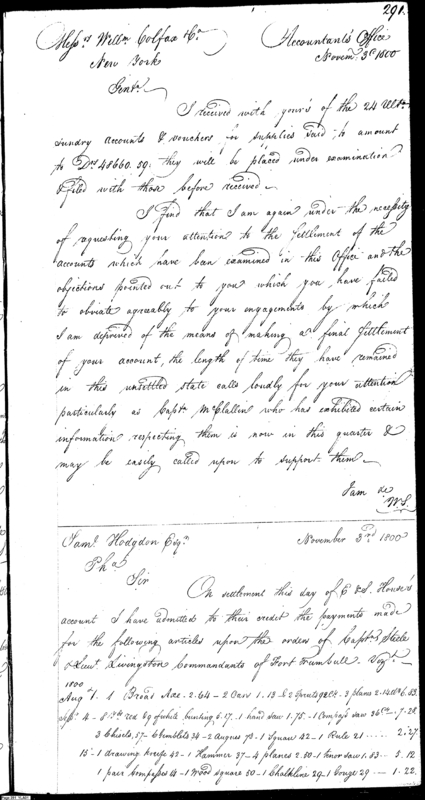 291.
Messrs Willm Colfax & Co Accountants Office
New York Novemr 3d 1800
Gentn
I received with yours of the 24 Ulto
sundry accounts & vouchers for supplies said to amount
to Drs 48660.59: they will be placed under examination
& filed with those before received.
I find that I am again under the necessity
of requesting your attention to the Settlement of the
accounts which have been examined in this Office and the
objections pointed out to you which you have failed
to obviate agreeably to your engagements by which
I am deprived of the means of making a final Settlement
of your account, the length of time they have remained
in this unsettled state calls loudly for your attention
particularly as Captn McClallen who has exhibited certain
information respecting them is now in this quarter &
may be easily called upon to support them.
I am &c
W.S.
Saml Hodgdon Esqr November 3rd 1800
Pha
Sir
On settlement this day of E & S. House's
account I have admitted to their credit the payments made
for the following articles upon the orders of Capts Steele
& Lieut Livingston Commandants of Fort Trumbull Vizt
1800
Augt 1. 1 Broad Axe. 2.64 - 3 planes 2.14 6.83
Sepr 4 - red by white bunting 6.17 - 1 hand saw 1.75 - 1 Compass saw 36 7.28
3 Chisels, 57 - 6 Gimblets 34 - 2 Augers 73 - 1 Square 42 - 1 Rule 21 2.27
15 - 1 drawing knife 42 - 1 Hammer 37 - 4 planes 2.50 - 1 tenor saw 1.83 5.12
1 pair Compasses 14 - 1 Wood square 50 - 1 Chalkline 29 - 1 Gouge 29 1.22